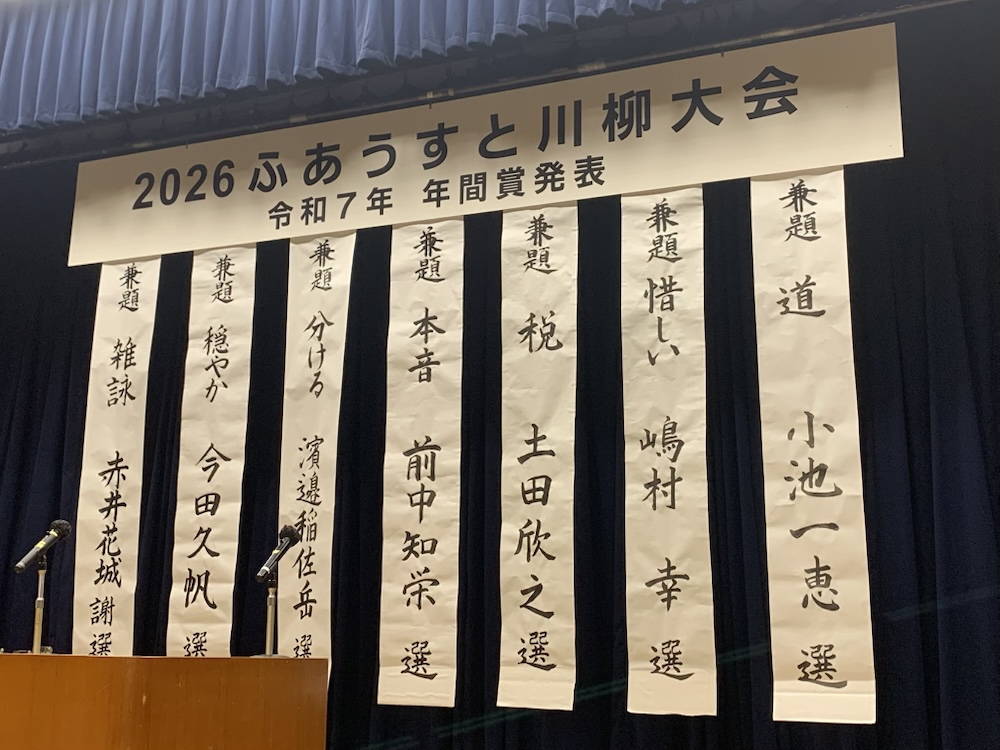 2026ふあうすと川柳大会
令和7年 年間賞発表
兼題 道 小池一恵 選
兼題 惜しい 嶋村 幸 選
兼題 税 土田欣之 選
兼題 本音 前中知栄 選
兼題 分ける 濱邉稲佐岳 選
兼題 穏やか 今田久帆 選
兼題 雑詠 赤井花城 謝選